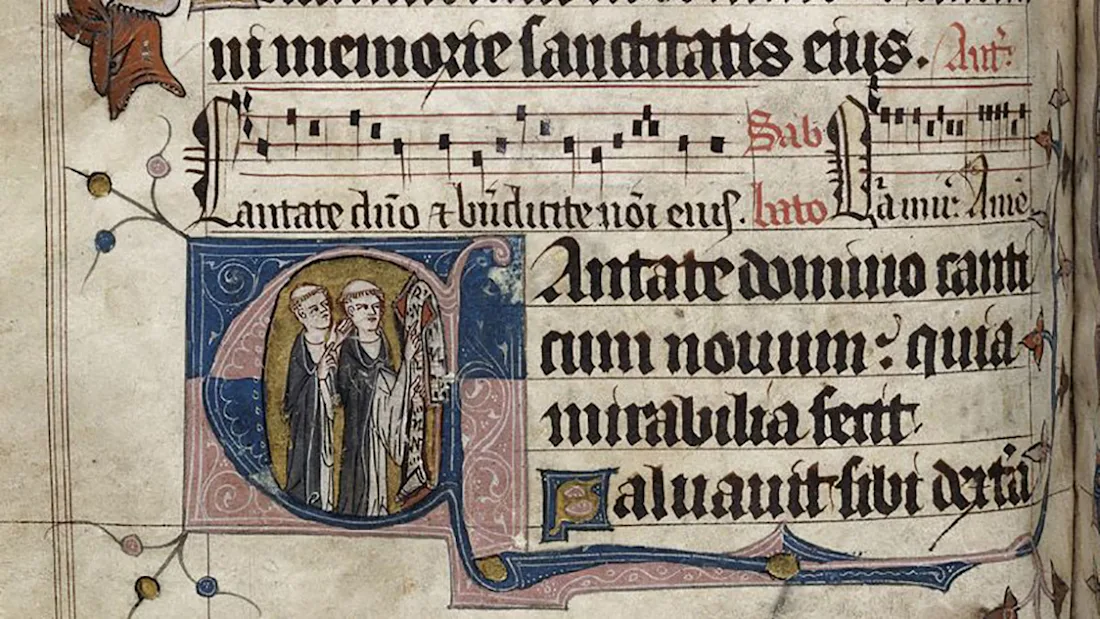 ni memorie sanctitatis eius. Ant̃
Sab
Cantate dño ⁊ bñdicite nõi eius. bato
CAntate domino canti
cum nouum: quia
mirabilia fecit
Saluauit sibi dext̃a